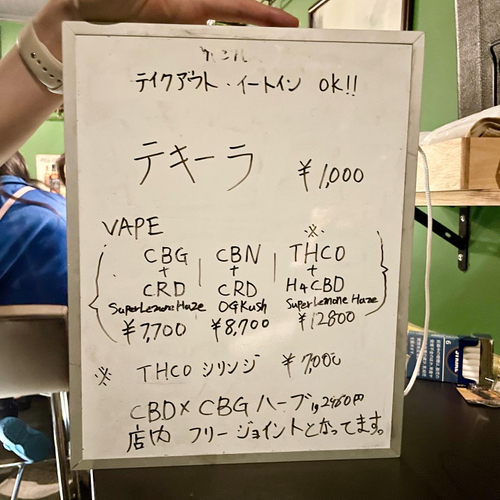 テイクアウト・イートイン OK!!
テキーラ ¥1,000
VAPE ※
CBG | CBN | THCO
+ + +
CRD | CRD | H4CBD
SuperLemoneHaze OGKush SuperLemoneHaze
¥7,700 ¥8,700 ¥12800
※ THCO シリンジ ¥7,000
CBD× CBG ハーブ 1g 2980円
店内 フリー ジョイントとかってます。